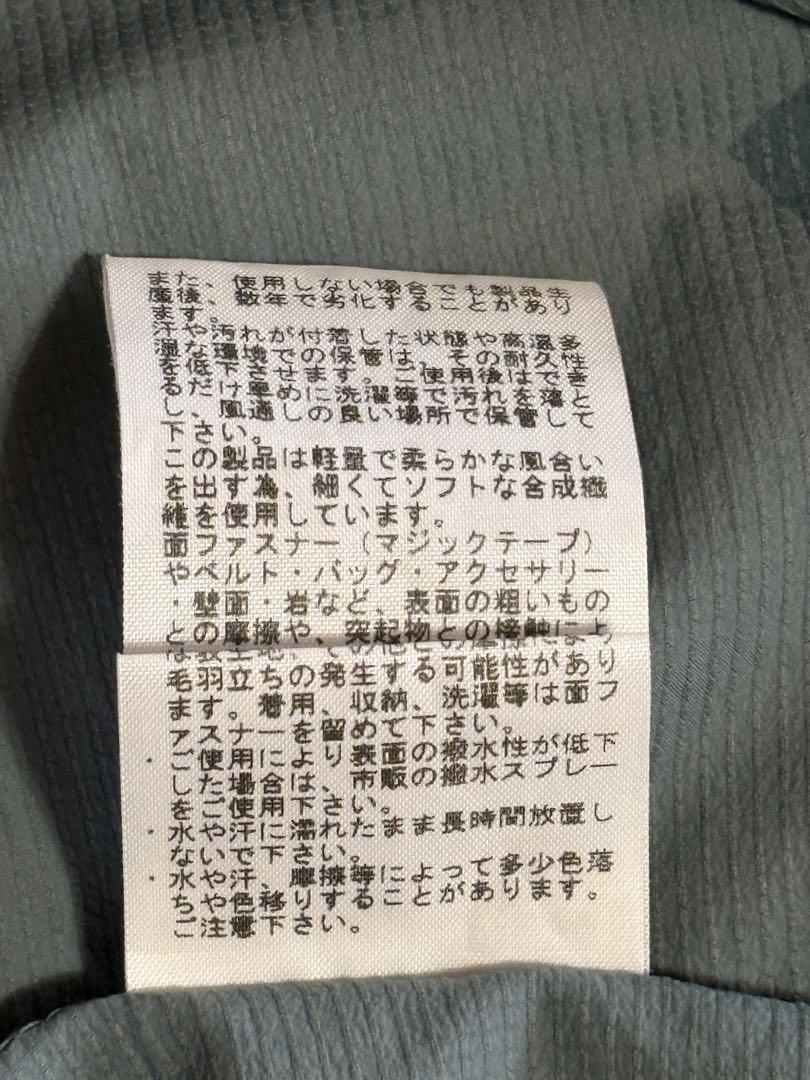 また、使用しない場合でも製品生
産後、数年で劣化することがあり
ます。
汗や汚れが付着した状態や高温多
湿な環境での保管は、その耐久性
を低下させます。ご使用後はでき
るだけ早めに洗濯等で汚れを落と
し、風通しの良い場所で保管して
下さい。
この製品は軽量で柔らかな風合い
を出す為、細くてソフトな合成繊
維を使用しています。
面ファスナー（マジックテープ）
やベルト・バッグ・アクセサリー
・壁面・岩など、表面の粗いもの
との摩擦や、突起物との接触によ
毛羽立ちの発生する可能性があり
ます。着用、収納、洗濯等は面フ
ァスナーを留めて下さい。
・ご使用により表面の撥水性が低下
した場合は、市販の撥水スプレー
をご使用下さい。
・水や汗に濡れたまま長時間放置し
ないで下さい。
・水や汗、摩擦等によって多少色落
ちや色移りすることがあります。
ご注意下さい。